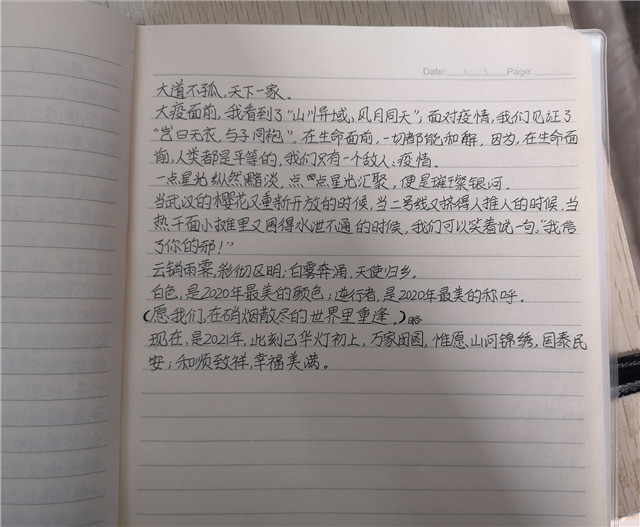 Date: Page:
大道不孤，天下一家。
大疫面前，我看到了“山川异域，风月同天”；面对疫情，我们见证了
“岂曰无衣，与子同袍”。在生命面前，一切都能和解，因为，在生命面
前，人类都是平等的，我们只有一个敌人：疫情。
一点星光纵然黯淡，点点星光汇聚，便是璀璨银河。
当武汉的樱花又重新开放的时候，当二号线又挤得人推人的时候，当
热干面小摊里又围得水泄不通的时候，我们可以笑着说一句，“我信
了你的邪！”
云销雨霁，彩彻区明；白雾奔涌，天使归乡。
白色，是2020年最美的颜色；逆行者，是2020年最美的称呼。
（愿我们，在硝烟散尽的世界里重逢。）
现在，是2021年，此刻已华灯初上，万家团圆，惟愿山河锦绣，国泰民
安；和顺致祥，幸福美满。